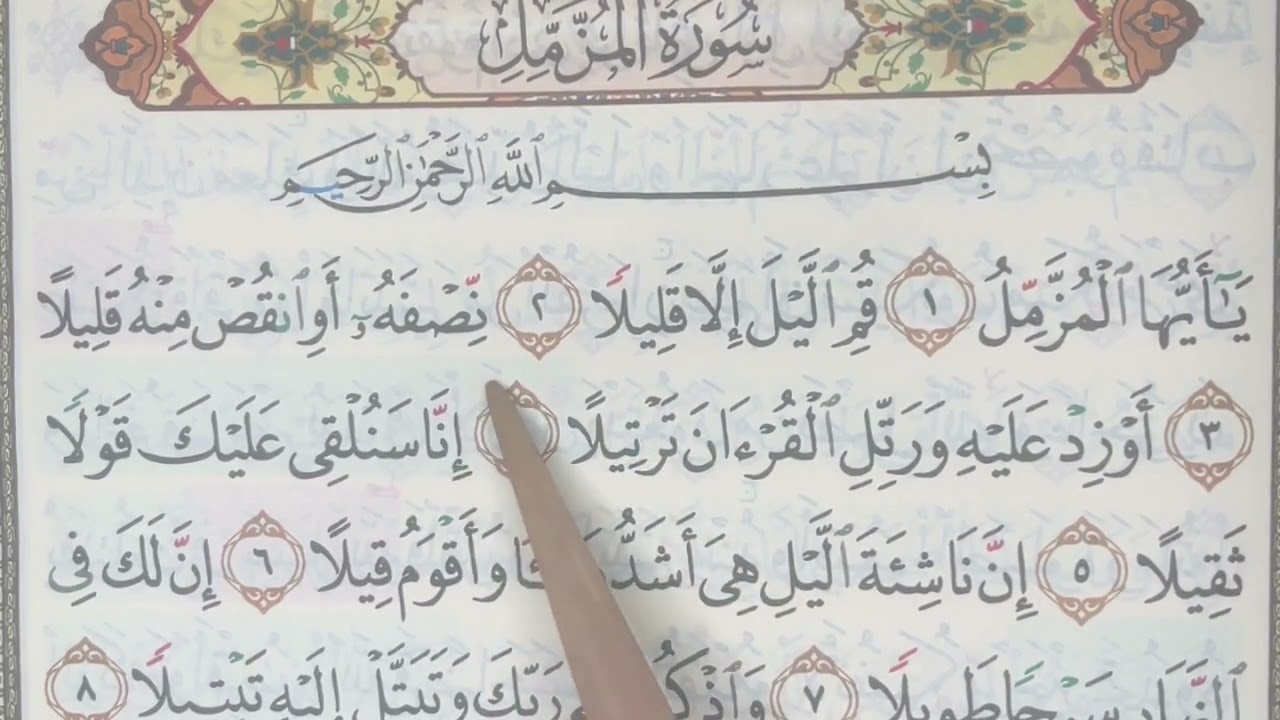 سُورَةُ الْمُزَّمِّلِ
بِسْمِ ٱللَّهِ ٱلرَّحْمَٰنِ ٱلرَّحِيمِ
يَٰٓأَيُّهَا ٱلْمُزَّمِّلُ ١ قُمِ ٱلَّيْلَ إِلَّا قَلِيلًا ٢ نِّصْفَهُۥٓ أَوِ ٱنقُصْ مِنْهُ قَلِيلًا
٣ أَوْ زِدْ عَلَيْهِ وَرَتِّلِ ٱلْقُرْءَانَ تَرْتِيلًا إِنَّا سَنُلْقِى عَلَيْكَ قَوْلًا
ثَقِيلًا ٥ إِنَّ نَاشِئَةَ ٱلَّيْلِ هِىَ أَشَدُّ وَأَقْوَمُ قِيلًا ٦ إِنَّ لَكَ فِى
ٱلنَّهَارِ سَبْحًا طَوِيلًا ٧ رَبِّكَ وَتَبَتَّلْ إِلَيْهِ تَبْتِيلًا ٨